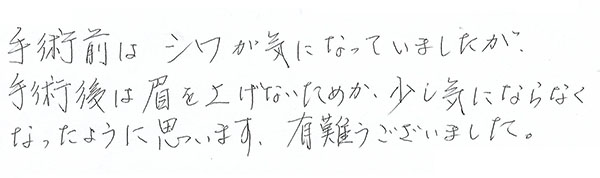 手術前は シワが気になっていましたが、
手術後は眉を上げないためか、少し気にならなく
なったように思います。有難うございました。